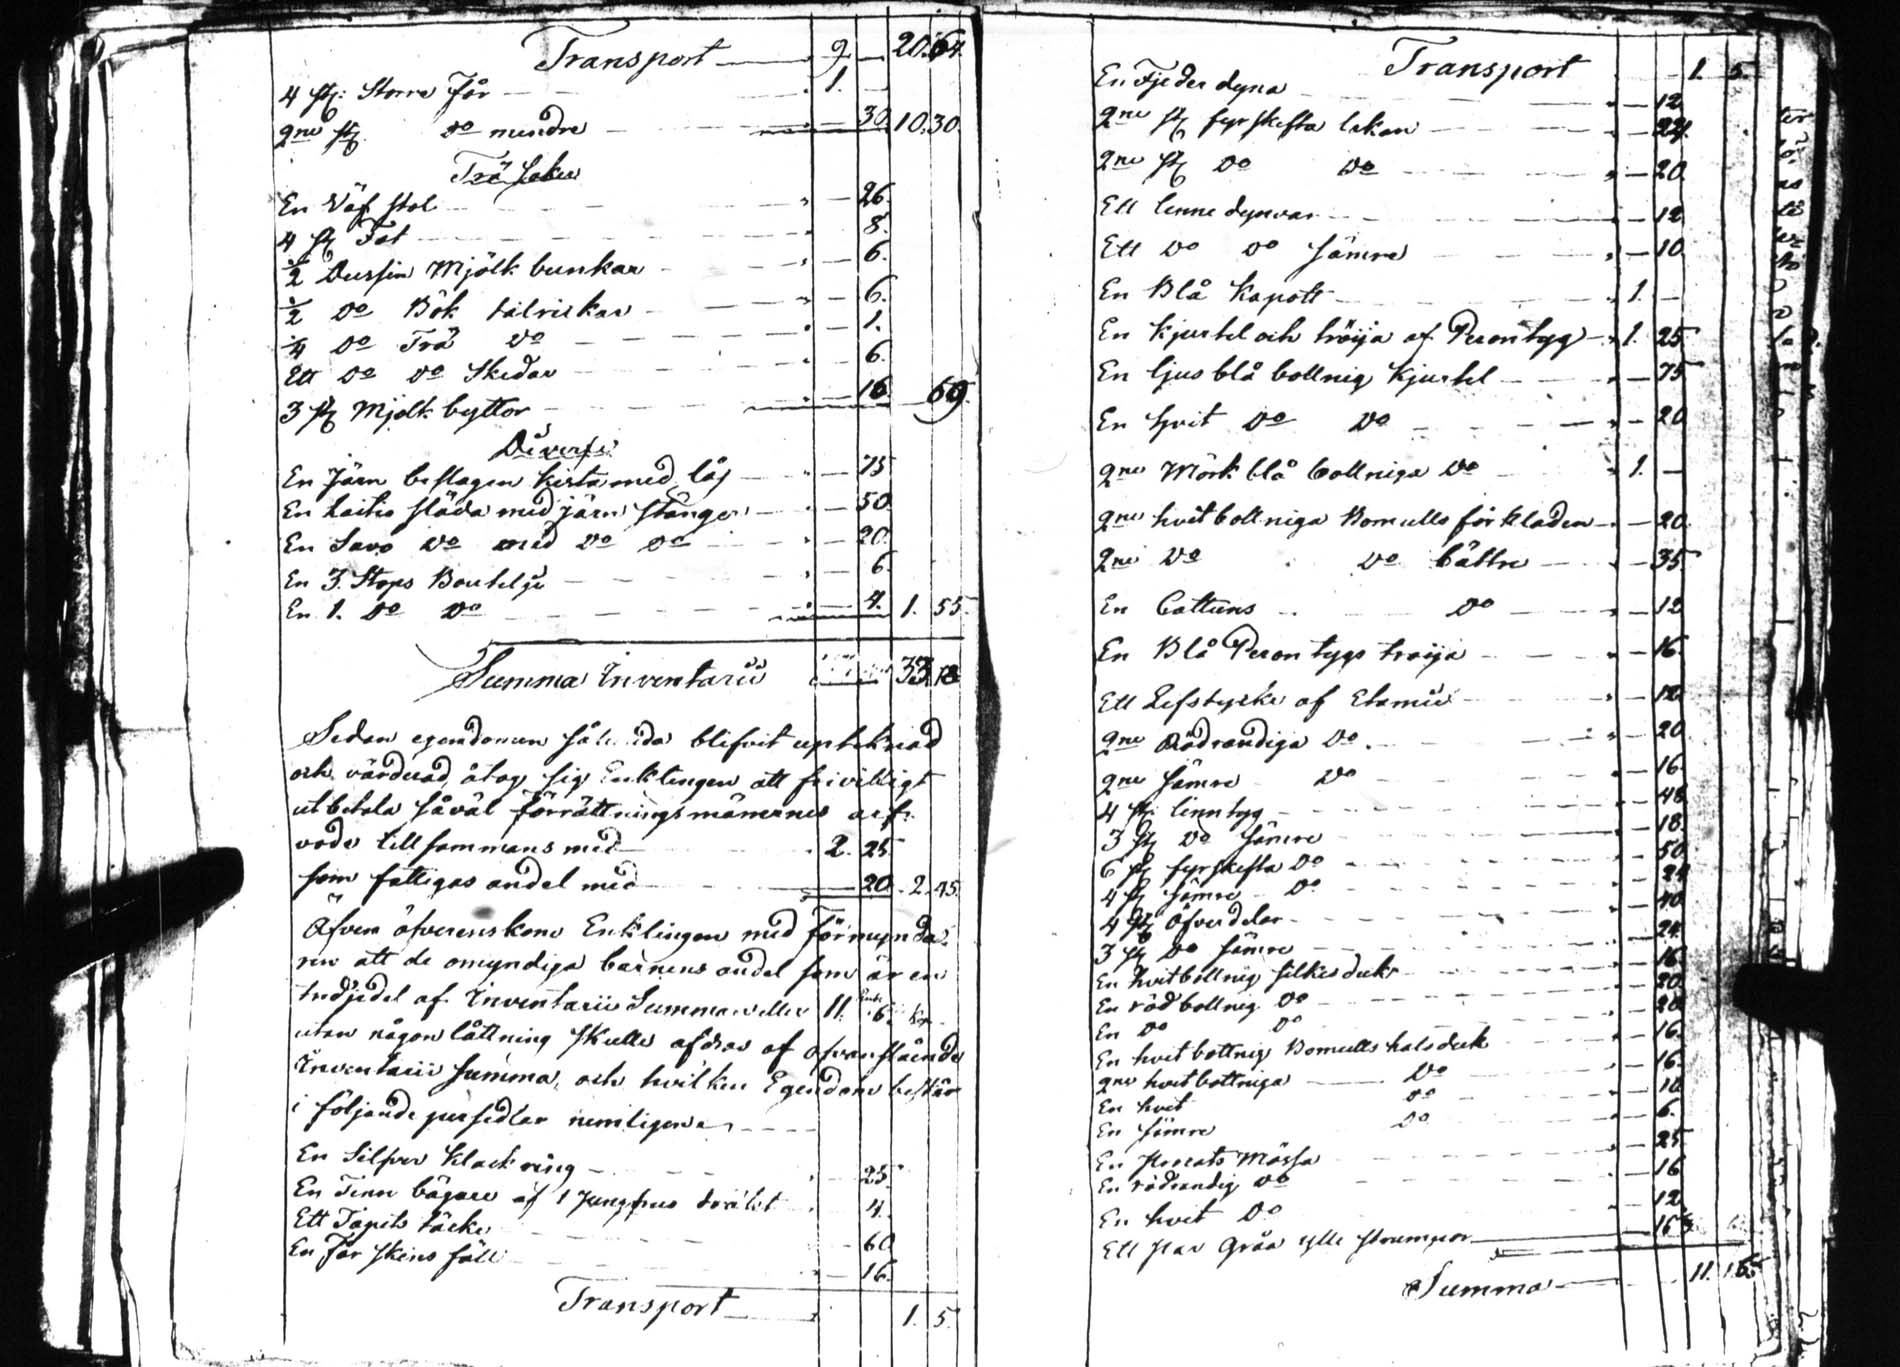 Transport 9 — 20.64.
4 st: Större Får 1. —
2ne st do mindre — 30. 10.30.
Trä saker
En Väf stol — 26.
4 st Fat 8.
½ Dussin Mjölk bunkar — 6.
½ do Bök talrickar — 6.
¼ do Trä do — 1.
Ett do do Skedar 6.
3 st Mjölk byttor — 16 69.
Diverse
En Järn beslagen kista med lås — 75
En släda med järn stänger — 50.
En Savo do med do do — 20.
En 3. Stops Boutelje — 6.
En 1. do do — 4. 1. 55.
Summa Inventarii 33.18
Sedan egendomen således blifvit uptecknad
och värderad, åtog sig Enklingen att frivilligt
utbetala såväl förrättningsmännernes arf-
vode tillsammans med 2. 25.
som fattigas andel med 20. 2.45.
Äfven öfverenskom Enklingen med Förmynda-
ren att de omyndiga barnens andel som är en
tredjedel af Inventarii Summan eller 11. 6. kop
utan någon skulle afdras af ofvanstående
Inventarii summa, och hvilken Egendom består
i följande persedlar nemligen
En Silfver klackring 25.
En Tenn bägare af 1 Jungfrus 4.
Ett Tapits täcke 60
En Får skins fäll — 16.
Transport 1. 5.
Transport 1. 5.
En Fjeder dyna — 12
2ne st fyrskefta lakan — 24.
2ne st do do — 20
Ett linne dynvar — 12
Ett do do sämre — 10
En Blå Kapott 1. —
En kjortel och tröija af Peron tyg 1. 25
En ljus blå bottnig kjortel — 75
En hvit do do — 20
2ne Mörk blå bottniga do 1. —
2ne hvit bottniga Bomulls förkläden — 20.
2ne do do bättre — 35
En Cattuns do — 12
En Blå Peron tygs tröija — 16
Ett Lifstycke af Etamin — 12
2ne Rödrandiga do — 20
2ne sämre do — 16.
4 st linntyg — 48
3 st do sämre — 18.
6 st fyrskefta do — 50
4 st sämre do — 24
4 st öfverdelar — 40
3 st do sämre — 24.
En hvitbottnig silkesduk — 16.
En röd bottnig do — 20.
En do do — 20
En hvit bottnig Bomulls halsduk — 16.
2ne hvit bottniga do — 16.
En hvit do — 10
En sämre do — 6.
En Mössa — 25
En rödrandig do — 16
En hvit do — 12
Ett par gråa ylle strumpor
Summa 11.